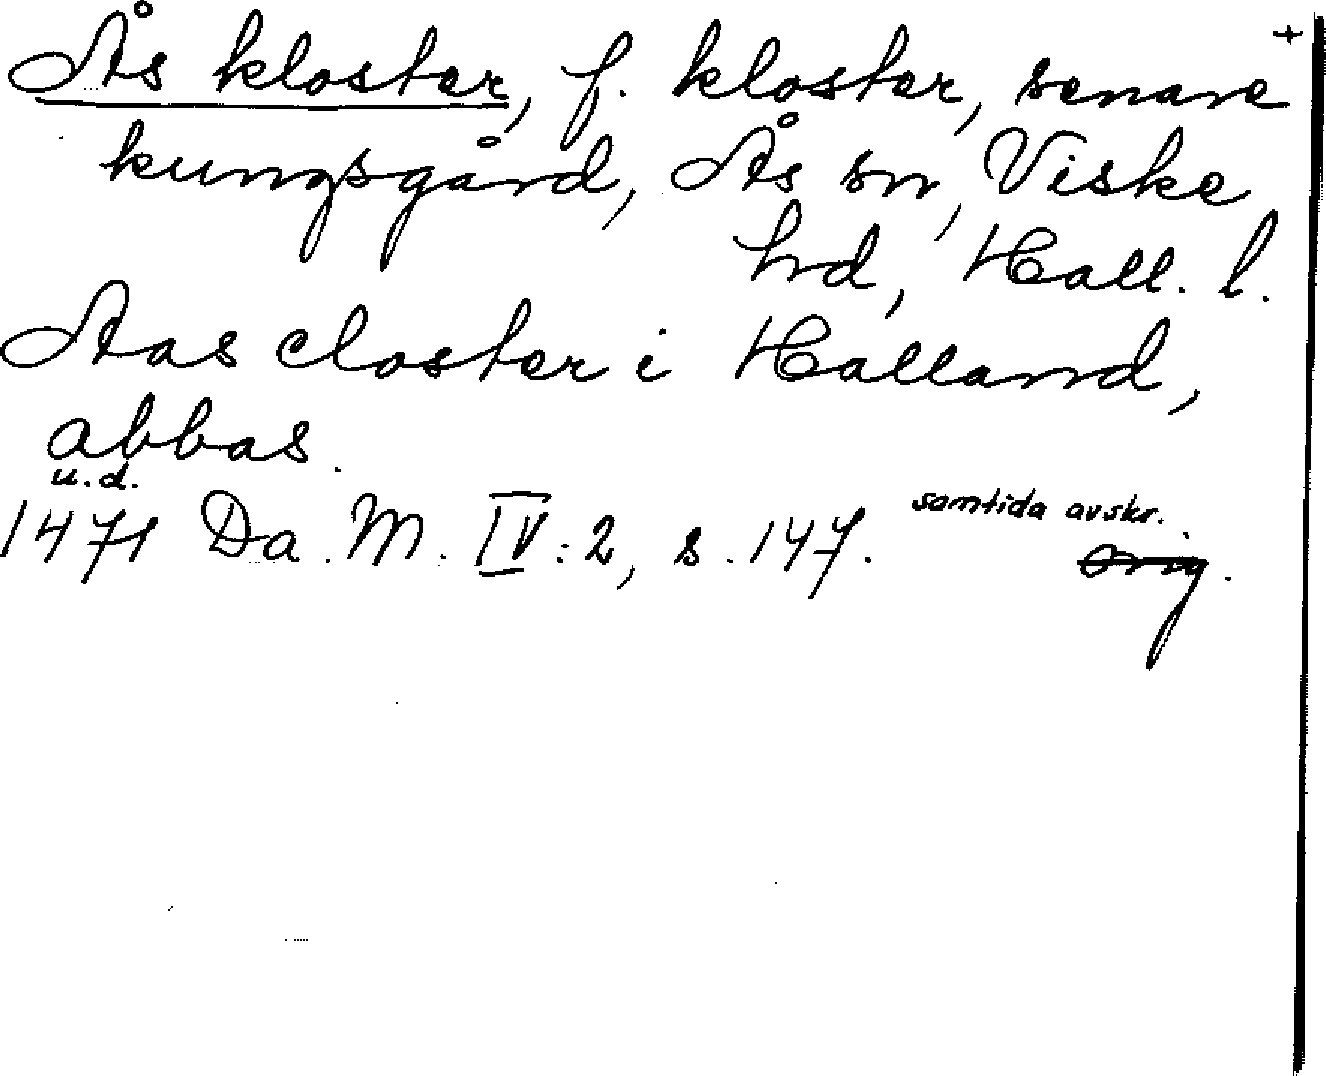 +
Ås kloster, f. kloster, senare
kungsgård, Ås sn, Viske
hd, Hall. l.
Aas closter i Halland,
abbas.
u.d.
1471 Da. M. IV: 2, s. 147. samtida avskr.
Orig.